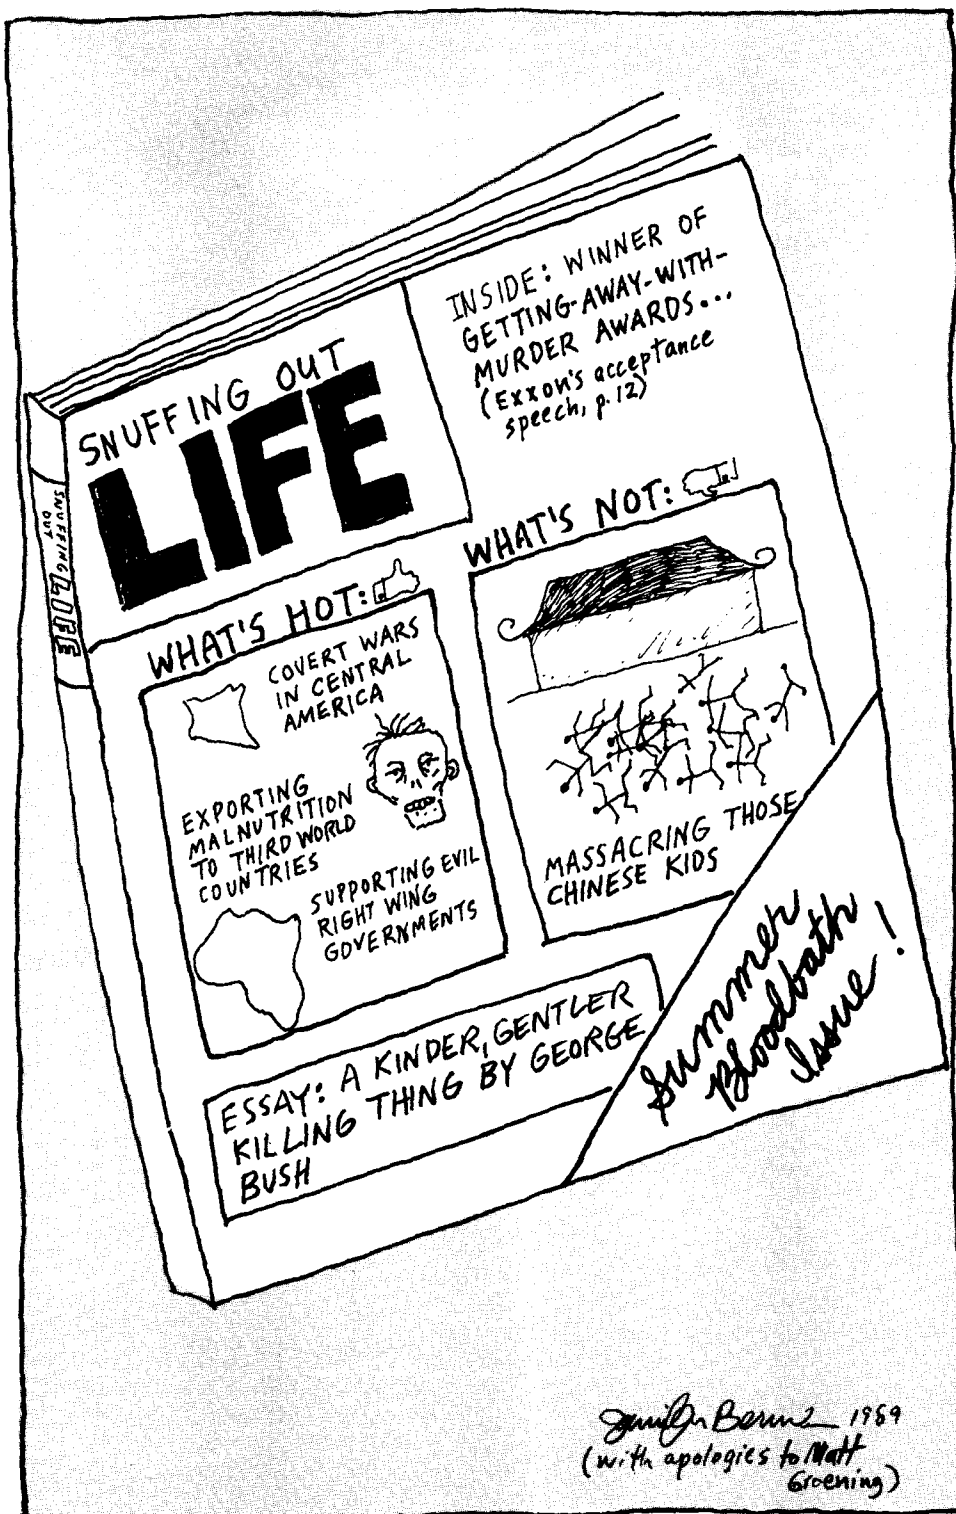 SNUFFING OUT
LIFE
INSIDE: WINNER OF
GETTING-AWAY-WITH-
MURDER AWARDS...
(Exxon's acceptance
speech, p. 12)
SNUFFING
OUT
LIFE
WHAT'S HOT:
COVERT WARS
IN CENTRAL
AMERICA
EXPORTING
MALNUTRITION
TO THIRD WORLD
COUNTRIES
SUPPORTING EVIL
RIGHT WING
GOVERNMENTS
WHAT'S NOT:
MASSACRING THOSE
CHINESE KIDS
ESSAY: A KINDER, GENTLER
KILLING THING BY GEORGE
BUSH
Summer
Bloodbath
Issue!
1989
(with apologies to Matt
Groening)